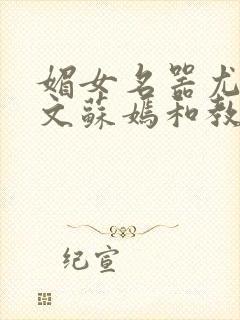 媚女名器尤
文蘇媽和教
纪宣